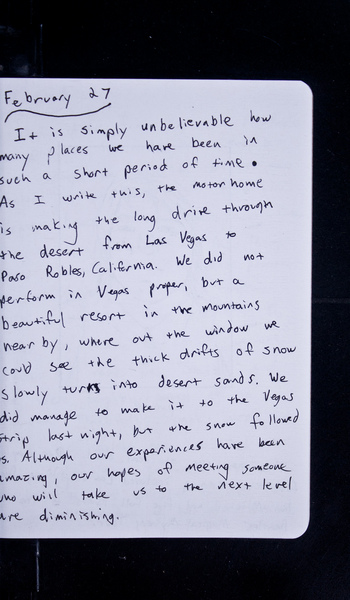 February 27
It is simply unbelievable how
many places we have been in
such a short period of time.
As I write this, the motor home
is making the long drive through
the desert from Las Vegas to
Paso Robles, California. We did not
perform in Vegas proper, but a
beautiful resort in the mountains
near by, where out the window we
could see the thick drifts of snow
slowly turn into desert sands. We
did manage to make it to the Vegas
strip last night, but the snow followed
us. Although our experiences have been
amazing, our hopes of meeting someone
who will take us to the next level
are diminishing.